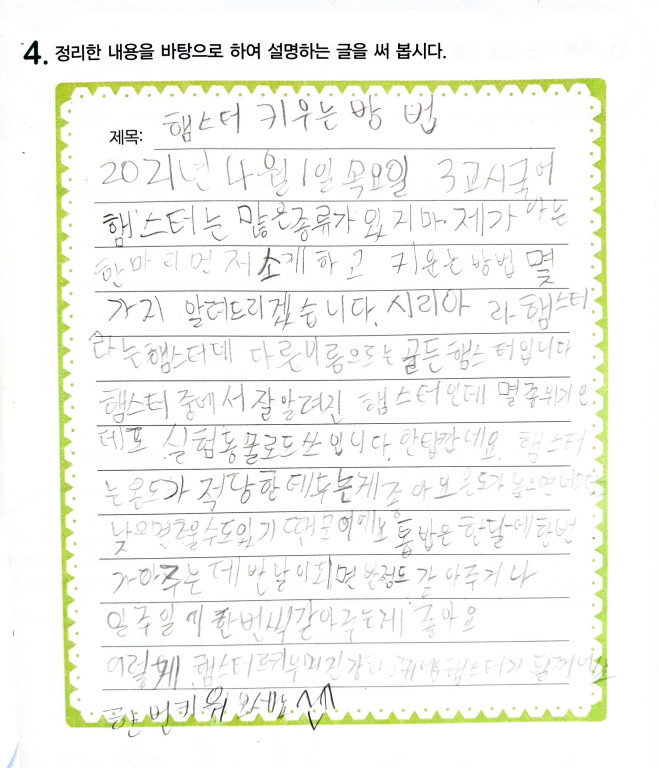 4. 정리한 내용을 바탕으로 하여 설명하는 글을 써 봅시다.
제목: 햄스터 키우는 방 법
2021년 4월 1일 목요일 3교시국어
햄스터는 많은종류가 있지마 제가 아는
한마리먼저 소게하고 키운는 방법 몇
가지 알려드리겠습니다. 시리아 라햄스터
라는햄스터데 다른이름으로는 골든햄스터입니다
햄스터 중에서 잘알려진 햄스터인데 멸종위기인
데프 실험동물로드쓰입니다. 안탑깝네요. 햄스터
는온도가 적당한데두는게종아요 온도가 높으면
낮으면추울수도있기 때문이에요 톱밥은 한달에한번
가아주는데반날이되면 반정도 갈아주거나
일주일에 한번씩갈아주는게 좋아요
이렇게 햄스터르키우며진강한 햄스터가 될꺼에요
한번키워보세요